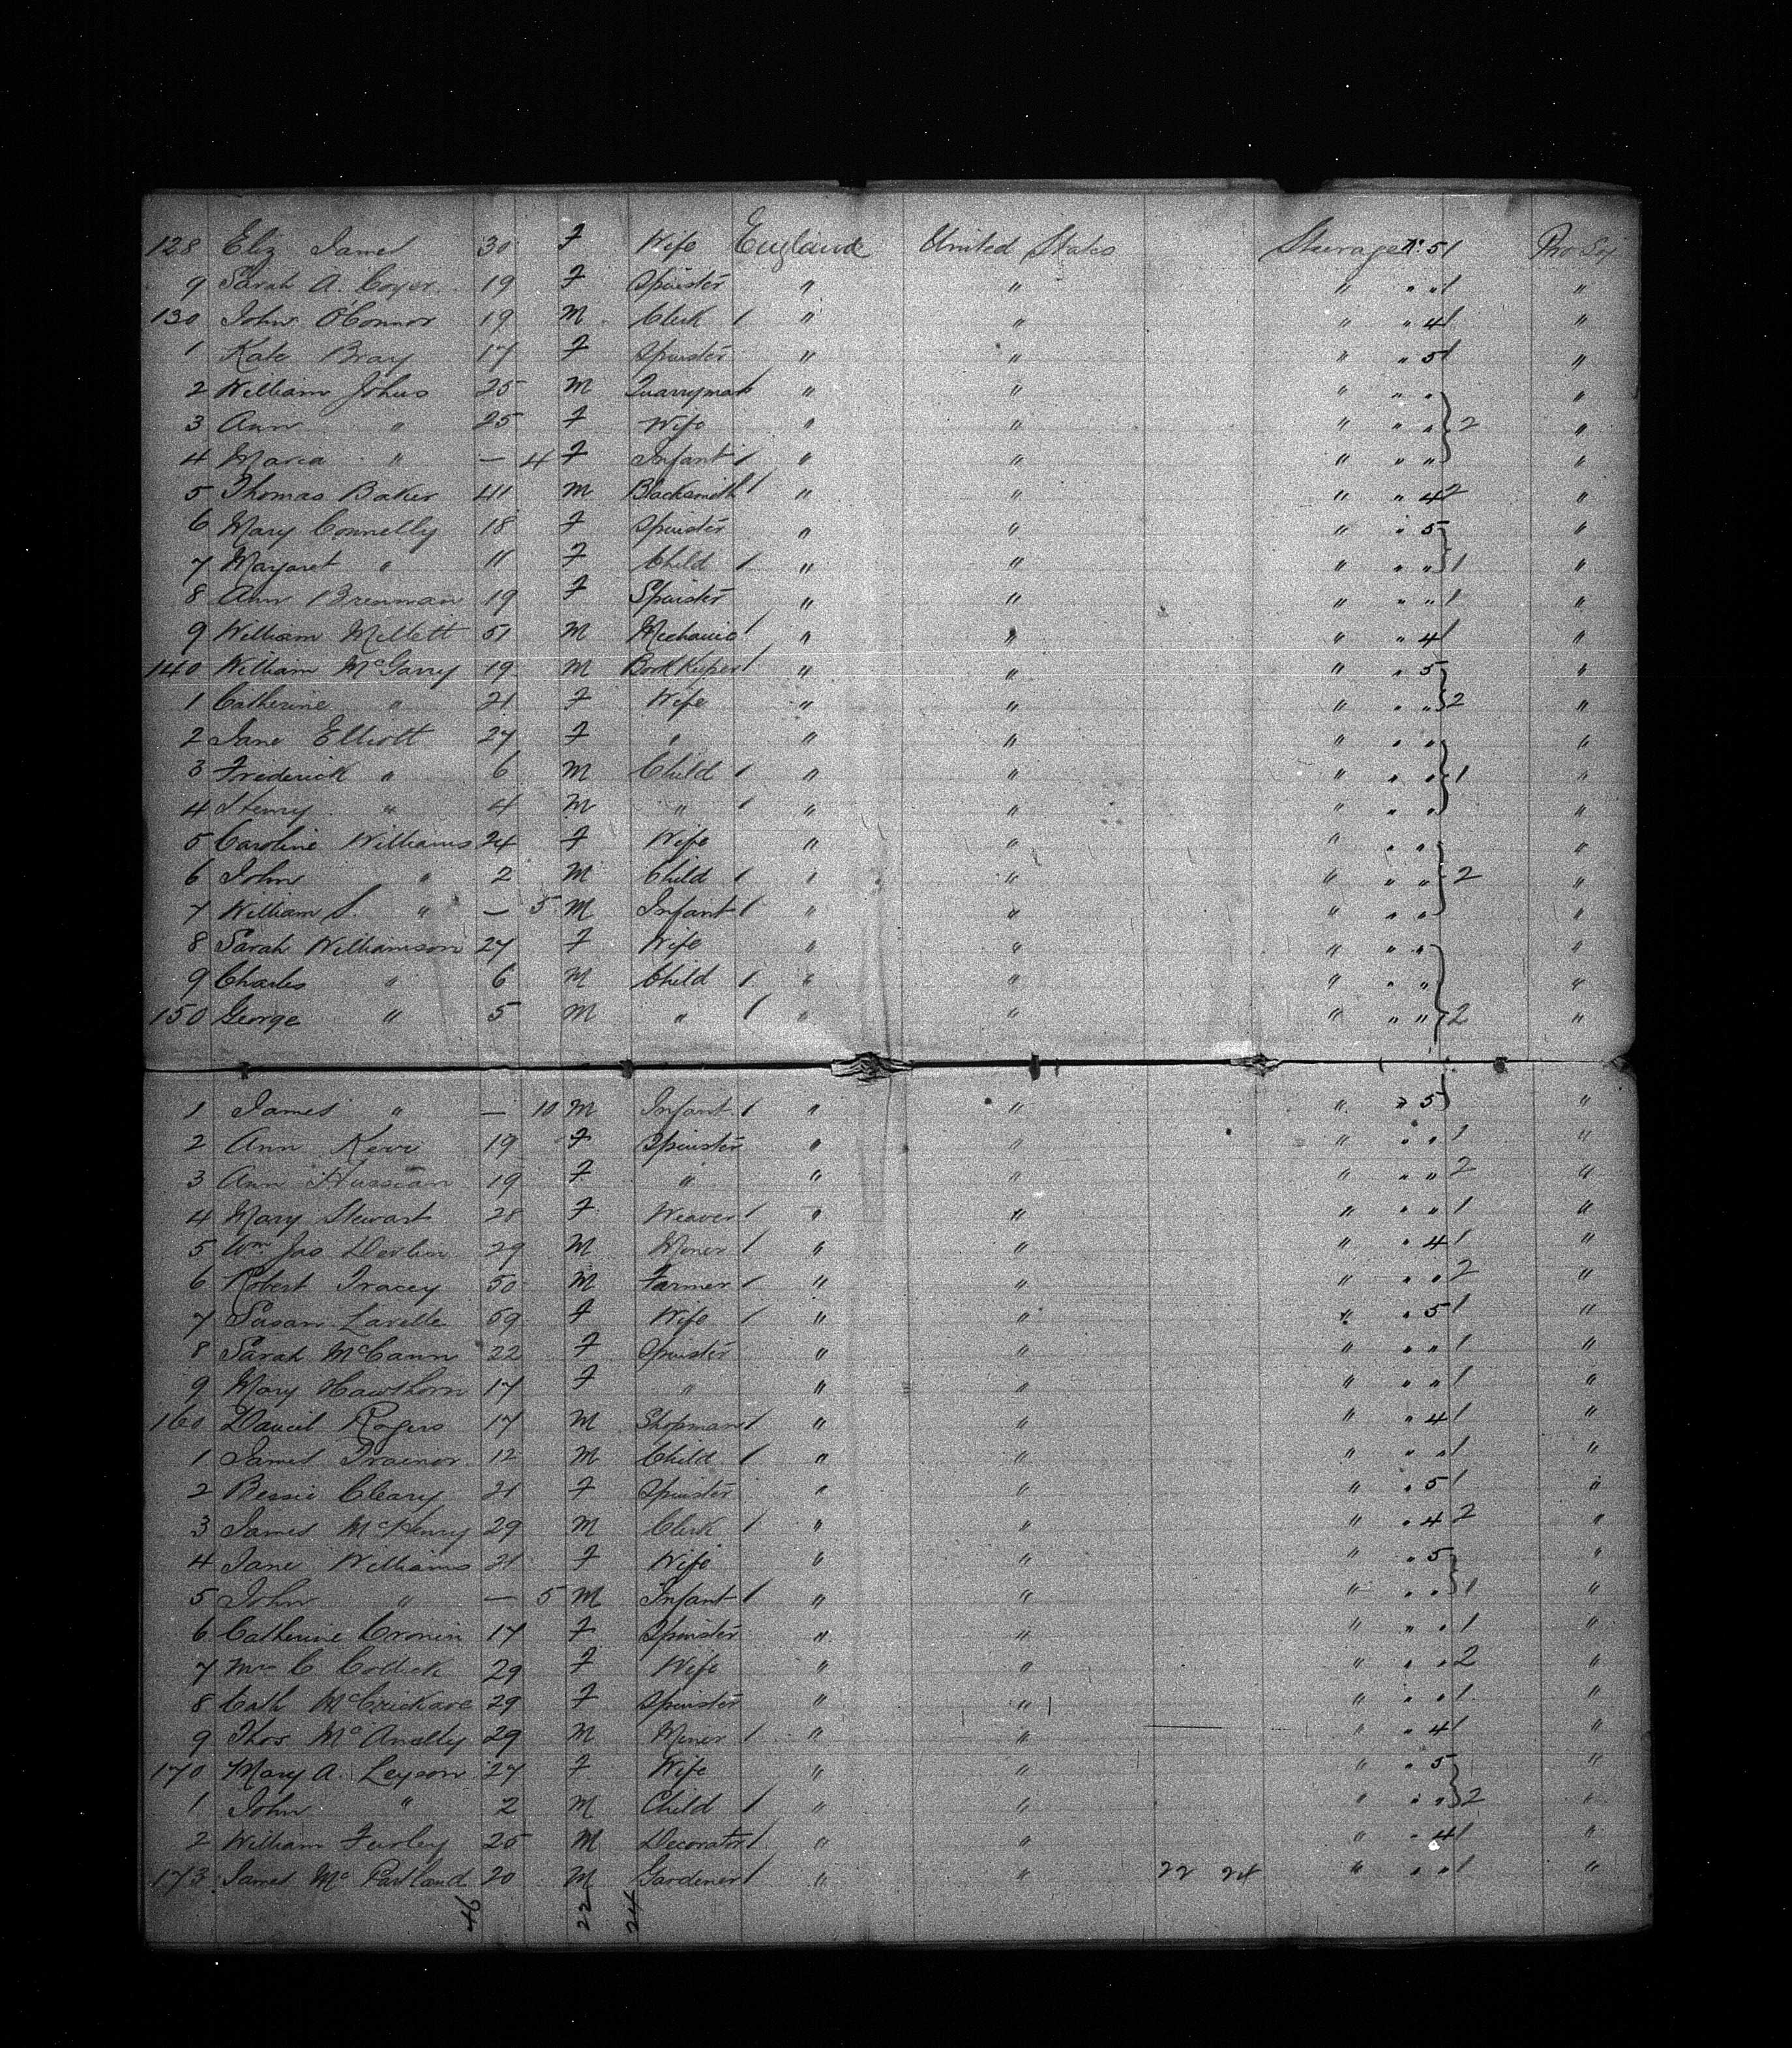 128 Eliz James 30 F Wife England United States Steerage No. 5 1 Pro Soj
9 Sarah A. Coyer 19 F Spinster " " " " " 1 "
130 John O'Connor 19 M Clerk / " " " " 4 1 "
1 Kate Bray 17 F Spinster " " " " 5 1 "
2 William Johns 25 M Quarryman / " " " " " "
3 Ann " 25 F Wife " " " " " 2 "
4 Maria " — 4 F Infant / " " " " " "
5 Thomas Baker 41 M Blacksmith / " " " " 4 2 "
6 Mary Connelly 18 F Spinster " " " " 5 "
7 Margaret " 11 F Child / " " " " " 1 "
8 Ann Brennan 19 F Spinster " " " " " 1 "
9 William Mellett 51 M Mechanic / " " " " 4 1 "
140 William McGarry 19 M Bookkeeper / " " " " 5 "
1 Catherine " 21 F Wife " " " " " 2 "
2 Jane Elliott 27 F " " " " " " "
3 Frederick " 6 M Child / " " " " " 1 "
4 Henry " 4 M " / " " " " " "
5 Caroline Williams 24 F Wife " " " " " "
6 John " 2 M Child / " " " " " 2 "
7 William S. " — 5 M Infant / " " " " " "
8 Sarah Williamson 27 F Wife " " " " " "
9 Charles " 6 M Child / " " " " " "
150 George " 5 M " / " " " " " 2 "
1 James " — 10 M Infant / " " " " 5 "
2 Ann Kerr 19 F Spinster " " " " " 1 "
3 Ann Hussian 19 F " " " " " " 2 "
4 Mary Stewart 28 F Weaver / " " " " " 1 "
5 Wm Jas Devlin 29 M Miner / " " " " 4 1 "
6 Robert Tracey 50 M Farmer / " " " " " 2 "
7 Susan Lavelle 59 F Wife / " " " " 5 1 "
8 Sarah McCann 22 F Spinster " " " " " 1 "
9 Mary Hawthorn 17 F " " " " " " 1 "
160 Daniel Rogers 17 M Shopman / " " " " 4 1 "
1 James Trainor 12 M Child / " " " " " 1 "
2 Bessie Cleary 21 F Spinster " " " " 5 1 "
3 James McHenry 29 M Clerk / " " " " 4 2 "
4 Jane Williams 21 F Wife " " " " 5 "
5 John " — 5 M Infant / " " " " " 1 "
6 Catherine Cronin 17 F Spinster " " " " " 1 "
7 Mrs C 29 F Wife " " " " " 2 "
8 Cath McCrickard 29 F Spinster " " " " " 1 "
9 Thos McAnally 29 M Miner / " " " " 4 1 "
170 Mary A. Leyson 27 F Wife " " " " 5 "
1 John " 2 M Child / " " " " " 2 "
2 William Furley 25 M Decorator / " " " " 4 1 "
173 James McPartland 20 M Gardener / " " 22 24 " " " 1 "
46 22 24